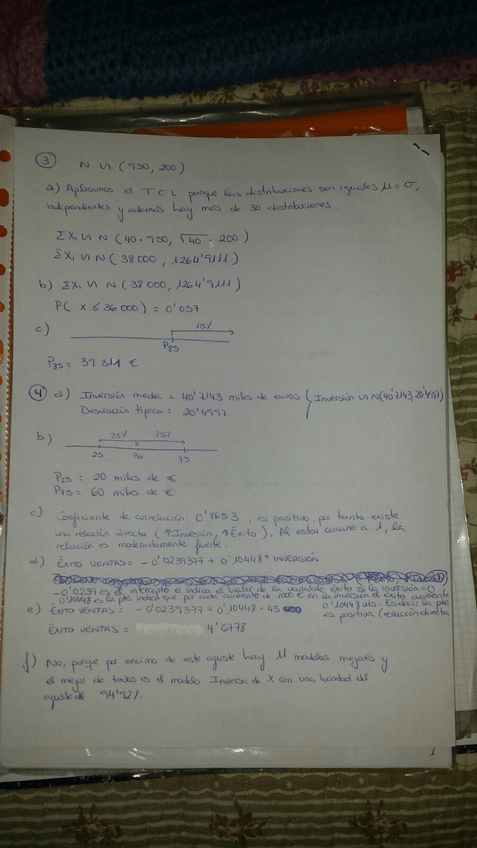 ③ N ∽ (950, 200)
a) Aplicamos el T C L porque las distribuciones son iguales μ = σ,
independientes y además hay más de 30 distribuciones
ΣXi ∽ N (40 · 950, √40 · 200)
ΣXi ∽ N (38 000, 1264'9111)
b) ΣXi ∽ N (38 000, 1264'9111)
P( X ≤ 36 000) = 0'057
c) 15%
P85
P85 = 39 311 €
④ a) Inversión media = 40'7143 miles de euros } Inversión ∽ N(40'7143, 20'4997)
Desviación típica = 20'4997
b) 25% 25%
25 75
P25 = 20 miles de €
P75 = 60 miles de €
c) Coeficiente de correlación: 0'8653, es positivo, por tanto existe
una relación directa (↑Inversión, ↑Éxito). Al estar cercano a 1, la
relación es moderadamente fuerte.
d) ÉXITO VENTAS = - 0'0239377 + 0'10448 * INVERSIÓN
-0'0239 es el intercepto e indica el valor de la variable éxito si la inversión = 0
0'10448 es la pte indica que por cada aumento de 1000 € en la inversión el éxito aumente
0'10448 uds. Es decir la pte
es positiva (relación directa
e) ÉXITO VENTAS = - 0'0239377 + 0'10448 · 45
ÉXITO VENTAS = 4'6778
f) No, porque por encima de este ajuste hay 11 modelos mejores y
el mejor de todos es el modelo Inversa de X con una bondad del
ajuste de 94'92%.